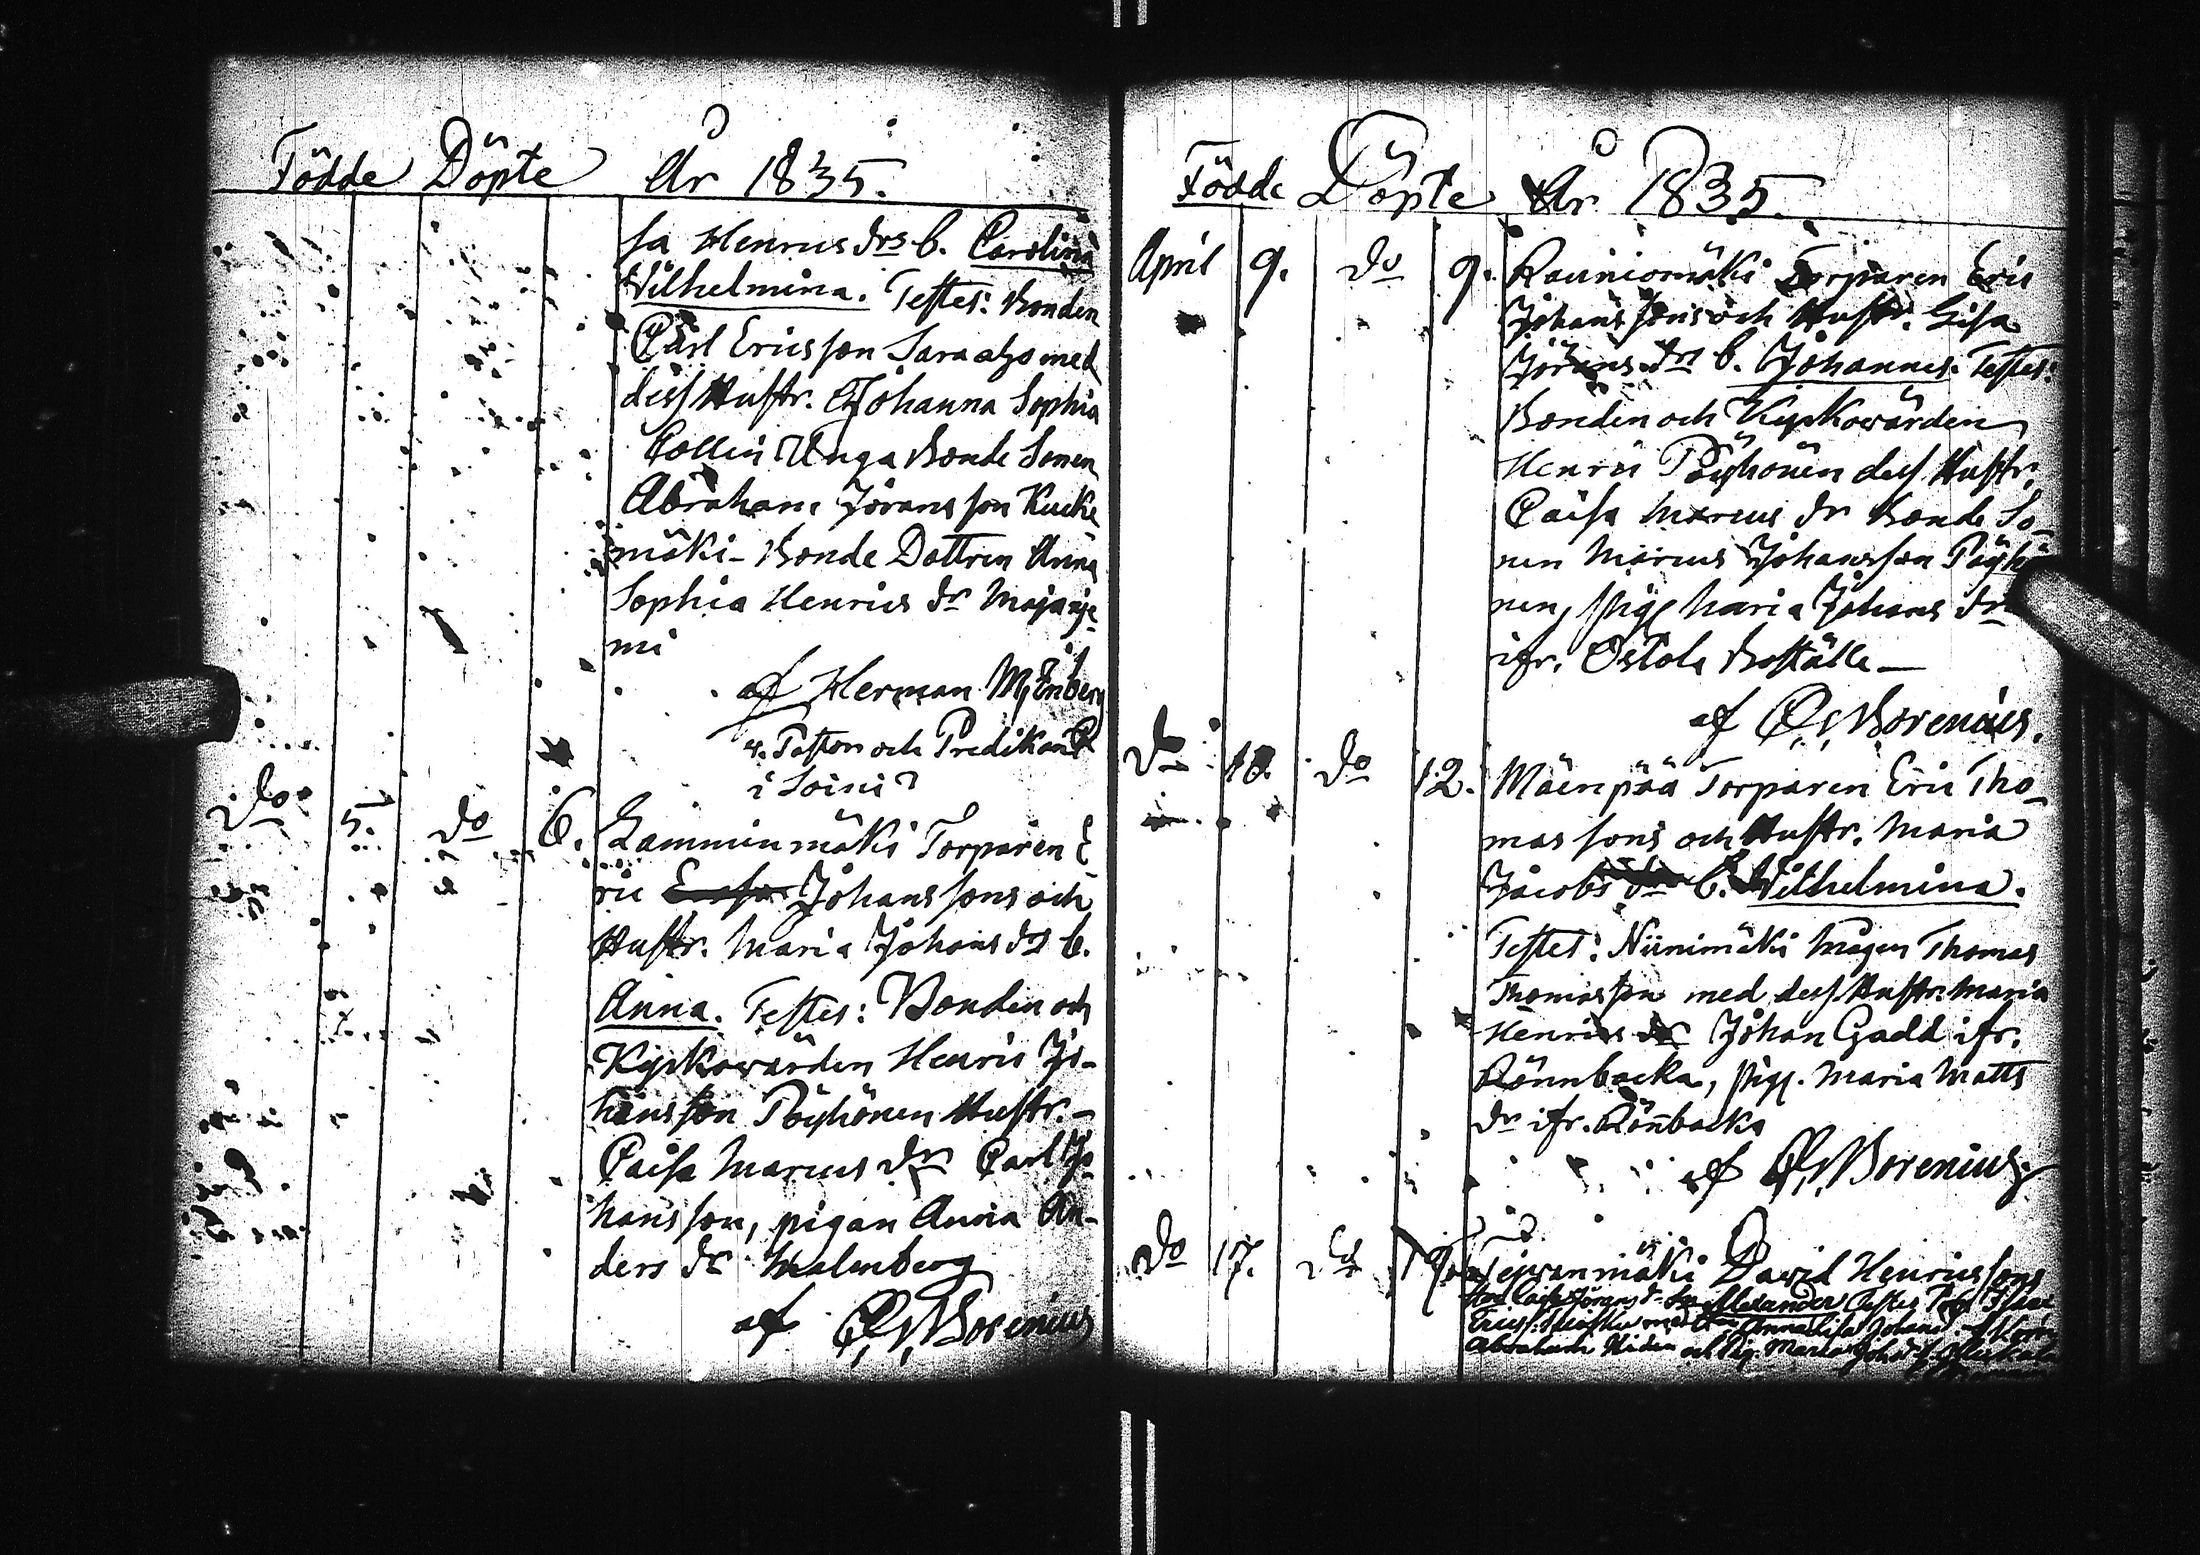 Födde Döpte År 1835.
sa Henrics drs b. Carolina
Wilhelmina. Testes: Bonden
Carl Ericsson med
dess Hustr. Johanna Sophia
Collin Unga Bonde Sonen
Abraham Jöransson Kucke
mäki - Bonde Dottren Anna
Sophia Henrics dr Majanje
mi
af Herman
v. Pastor och Predikant
i Soini
Do 5. do 6. Lamminmäki Torparen E
ric Johanssons och
Hustr. Maria Johans drs b.
Anna. Testes: Bonden och
Kyrkowärden Henric Jo-
hansson Pöyhönen Hustr. -
Caisa Marcus dr Carl Jo
hansson, pigan Anna An-
ders dr Malmberg
af Borenius
Födde Döpte År 1835.
April 9. do 9. Rauniomäki Torparen Eric
Johanssons och Hustr. Lisa
Jörans drs b. Johannes. Testes:
Bonden och Kyrkowärden
Henric Pöyhönen dess Hustr.
Caisa Marcus dr Bonde So-
nen Marcus Johansson Pöyhö
nen, pig. Maria Johans dr
ifr. Ostola Boställe —
af Borenius.
Do 10. do 12. Mäenpää Torparen Eric Tho-
mas sons och Hustr. Maria
Jacobs dr b. Wilhelmina.
Testes: Niinimäki Mågen Thomas
Thomasson med dess Hustr. Maria
Henrics dr Johan Gadd ifr.
Rönnbacka, pig. Maria Matts
dr ifr. Rönbacka
af Borenius
Do 17. do 19 David Henricssons
Caisa Jörans d. Son Alexander Testes
Erics: med Anna Lisa
Abraham och Pig. Maria